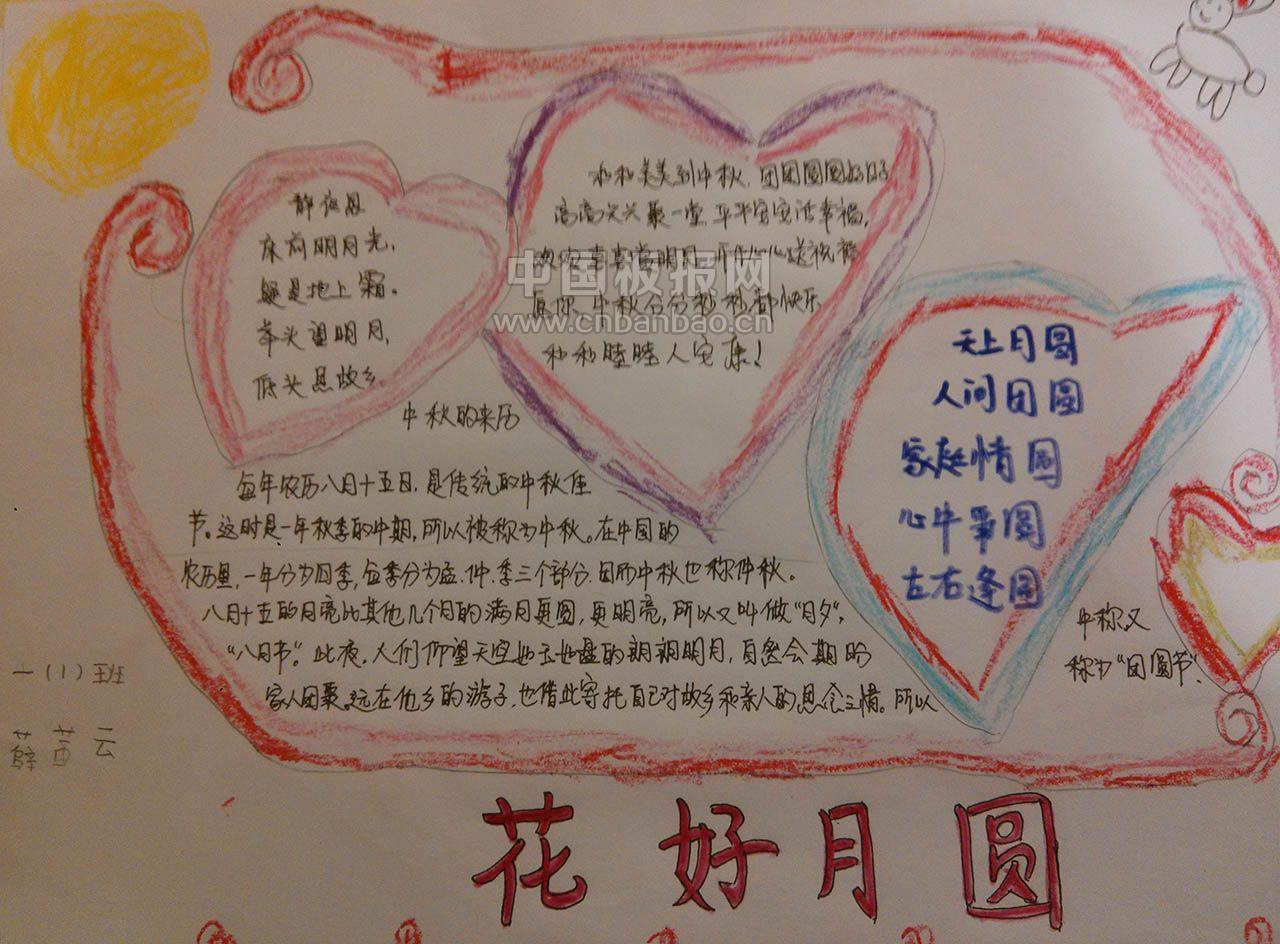 静夜思
床前明月光,
疑是地上霜。
举头望明月,
低头思故乡。
和和美美到中秋,团团圆圆好好
高高兴兴聚一堂,平平安安话幸福,
明月 送祝
愿你 中秋分分秒秒都快乐
和和睦睦人安康!
中国板报网
www.chbanbao.cn
天上月圆
人间团圆
家庭情圆
心中事圆
左右逢圆
中秋的来历
每年农历八月十五日,是传统的中秋佳
节。这时是一年秋季的中期,所以被称为中秋。在中国的
农历里,一年分为四季,每季分为孟、仲、季三个部分,因而中秋也称仲秋。
八月十五的月亮比其他几个月的满月更圆,更明亮,所以又叫做“月夕”,
“八月节”。此夜,人们仰望天空如玉如盘的朗朗明月,自然会期盼
家人团聚。远在他乡的游子,也借此寄托自己对故乡和亲人的思念之情。所以
中秋又
称为“团圆节”。
一(1)班
薛 云
花好月圆